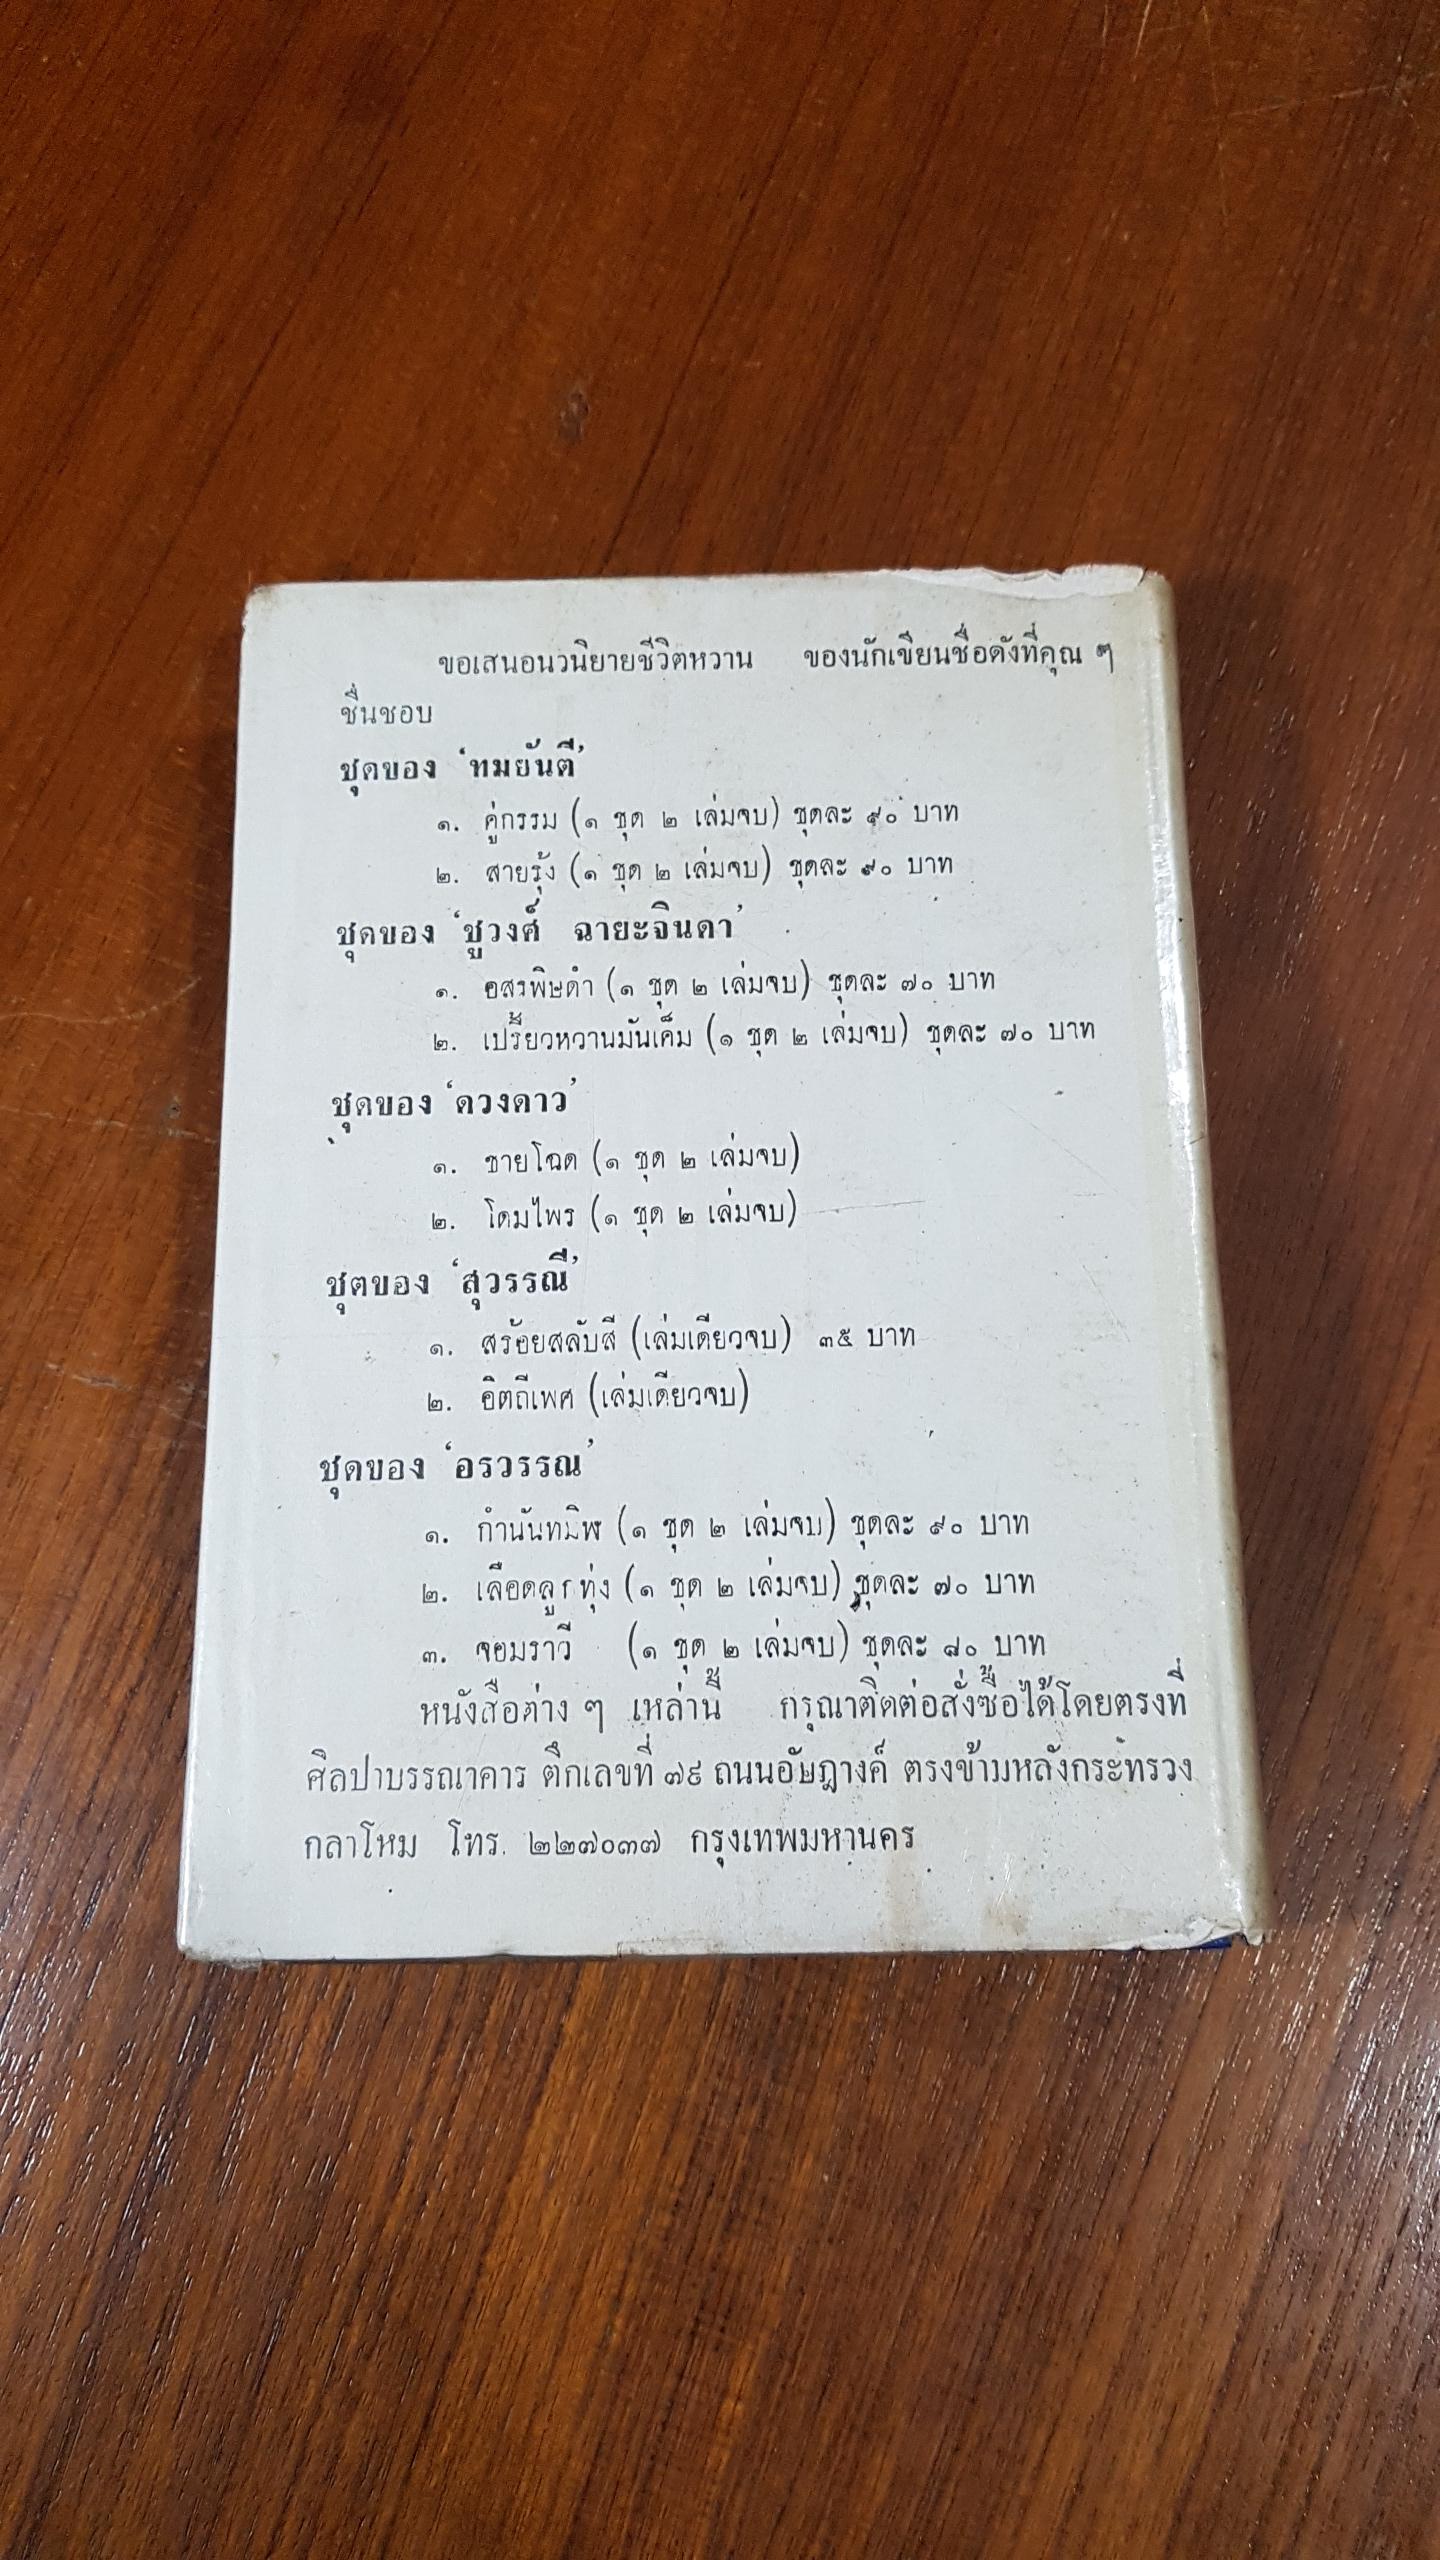 ขอเสนอนวนิยายชีวิตหวาน ของนักเขียนชื่อดังที่คุณ ๆ
ชื่นชอบ
ชุดของ ‘ทมยันตี’
๑. คู่กรรม (๑ ชุด ๒ เล่มจบ) ชุดละ ๙๐ บาท
๒. สายรุ้ง (๑ ชุด ๒ เล่มจบ) ชุดละ ๙๐ บาท
ชุดของ ‘ชูวงศ์ ฉายะจินดา’
๑. อสรพิษดำ (๑ ชุด ๒ เล่มจบ) ชุดละ ๗๐ บาท
๒. เปรี้ยวหวานมันเค็ม (๑ ชุด ๒ เล่มจบ) ชุดละ ๗๐ บาท
ชุดของ ‘ดวงดาว’
๑. ชายโฉด (๑ ชุด ๒ เล่มจบ)
๒. โดมไพร (๑ ชุด ๒ เล่มจบ)
ชุดของ ‘สุวรรณี’
๑. สร้อยสลับสี (เล่มเดียวจบ) ๓๕ บาท
๒. อิตถีเพศ (เล่มเดียวจบ)
ชุดของ ‘อรวรรณ’
๑. กำนันทมิฬ (๑ ชุด ๒ เล่มจบ) ชุดละ ๙๐ บาท
๒. เลือดลูกทุ่ง (๑ ชุด ๒ เล่มจบ) ชุดละ ๗๐ บาท
๓. จอมราวี (๑ ชุด ๒ เล่มจบ) ชุดละ ๘๐ บาท
หนังสือต่าง ๆ เหล่านี้ กรุณาติดต่อสั่งซื้อได้โดยตรงที่
ศิลปาบรรณาคาร ตึกเลขที่ ๗๙ ถนนอัษฎางค์ ตรงข้ามหลังกระทรวง
กลาโหม โทร. ๒๒๗๐๓๗ กรุงเทพมหานคร